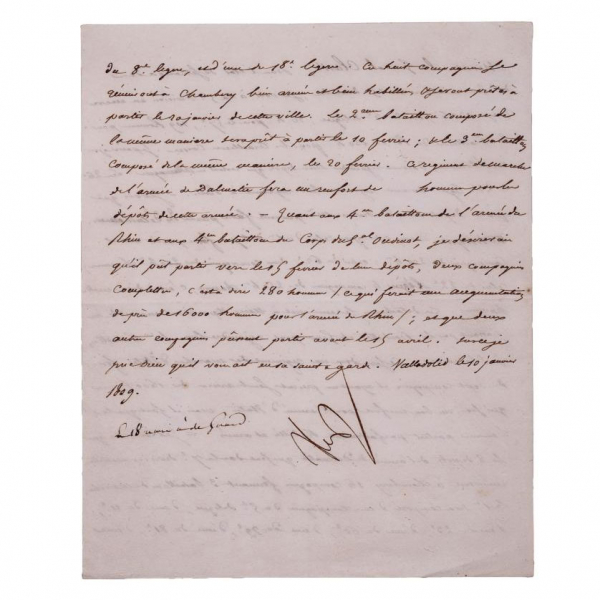 du 8e ligne, et d'une de 18e legere. Ces huit compagnies se
réuniront à Chambery bien armées et bien habillées, et seront prêtes à
partir le 20 janvier de cette ville. Le 2eme bataillon composé de
la même maniere sera prêt à partir le 10 fevrier; et le 3me bataillon
composé de la même maniere, le 20 fevrier. Ce régiment de marche
de l'armée de Dalmatie fera un renfort de hommes pour les
dépôts de cette armée. - Quant aux 4mes bataillons de l'armée du
Rhin et aux 4mes bataillons du Corps du Gal Oudinot, je désirerais
qu'il pût partir vers le 15 fevrier de leurs dépôts, deux compagnies
complettes, c'est à dire 280 hommes (ce qui ferait une augmentation
de près de 16000 hommes pour l'armée du Rhin); et que deux
autres compagnies pussent partir avant le 15 avril. Sur ce je
prie Dieu qu'il vous ait en sa sainte garde. Valladolid le 10 janvier
1809.
Le 18